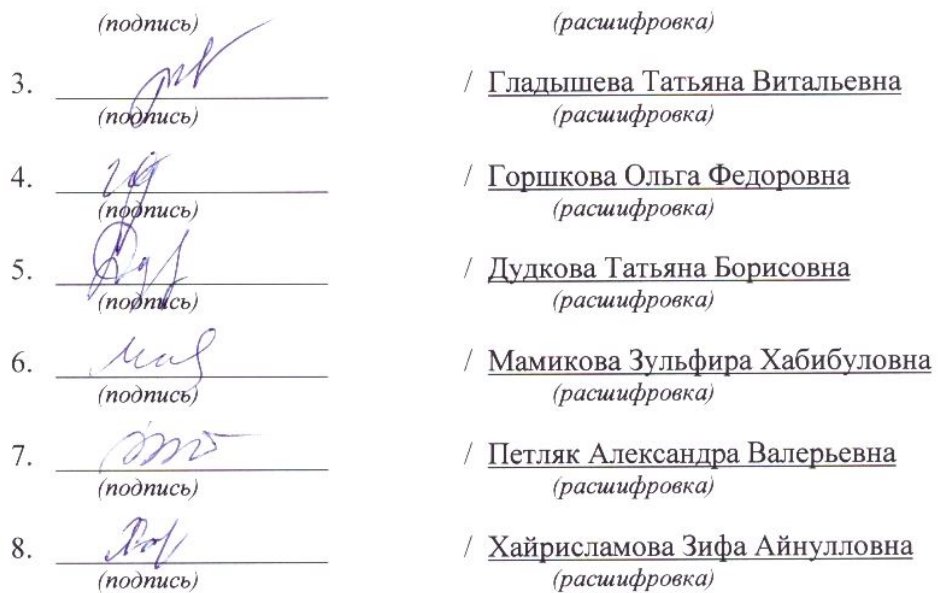 (подпись) (расшифровка)
3. / Гладышева Татьяна Витальевна
(подпись) (расшифровка)
4. / Горшкова Ольга Федоровна
(подпись) (расшифровка)
5. / Дудкова Татьяна Борисовна
(подпись) (расшифровка)
6. / Мамикова Зульфира Хабибуловна
(подпись) (расшифровка)
7. / Петляк Александра Валерьевна
(подпись) (расшифровка)
8. / Хайрисламова Зифа Айнулловна
(подпись) (расшифровка)